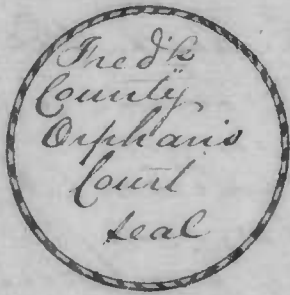 Fred'k
County
Orphans
Court
seal